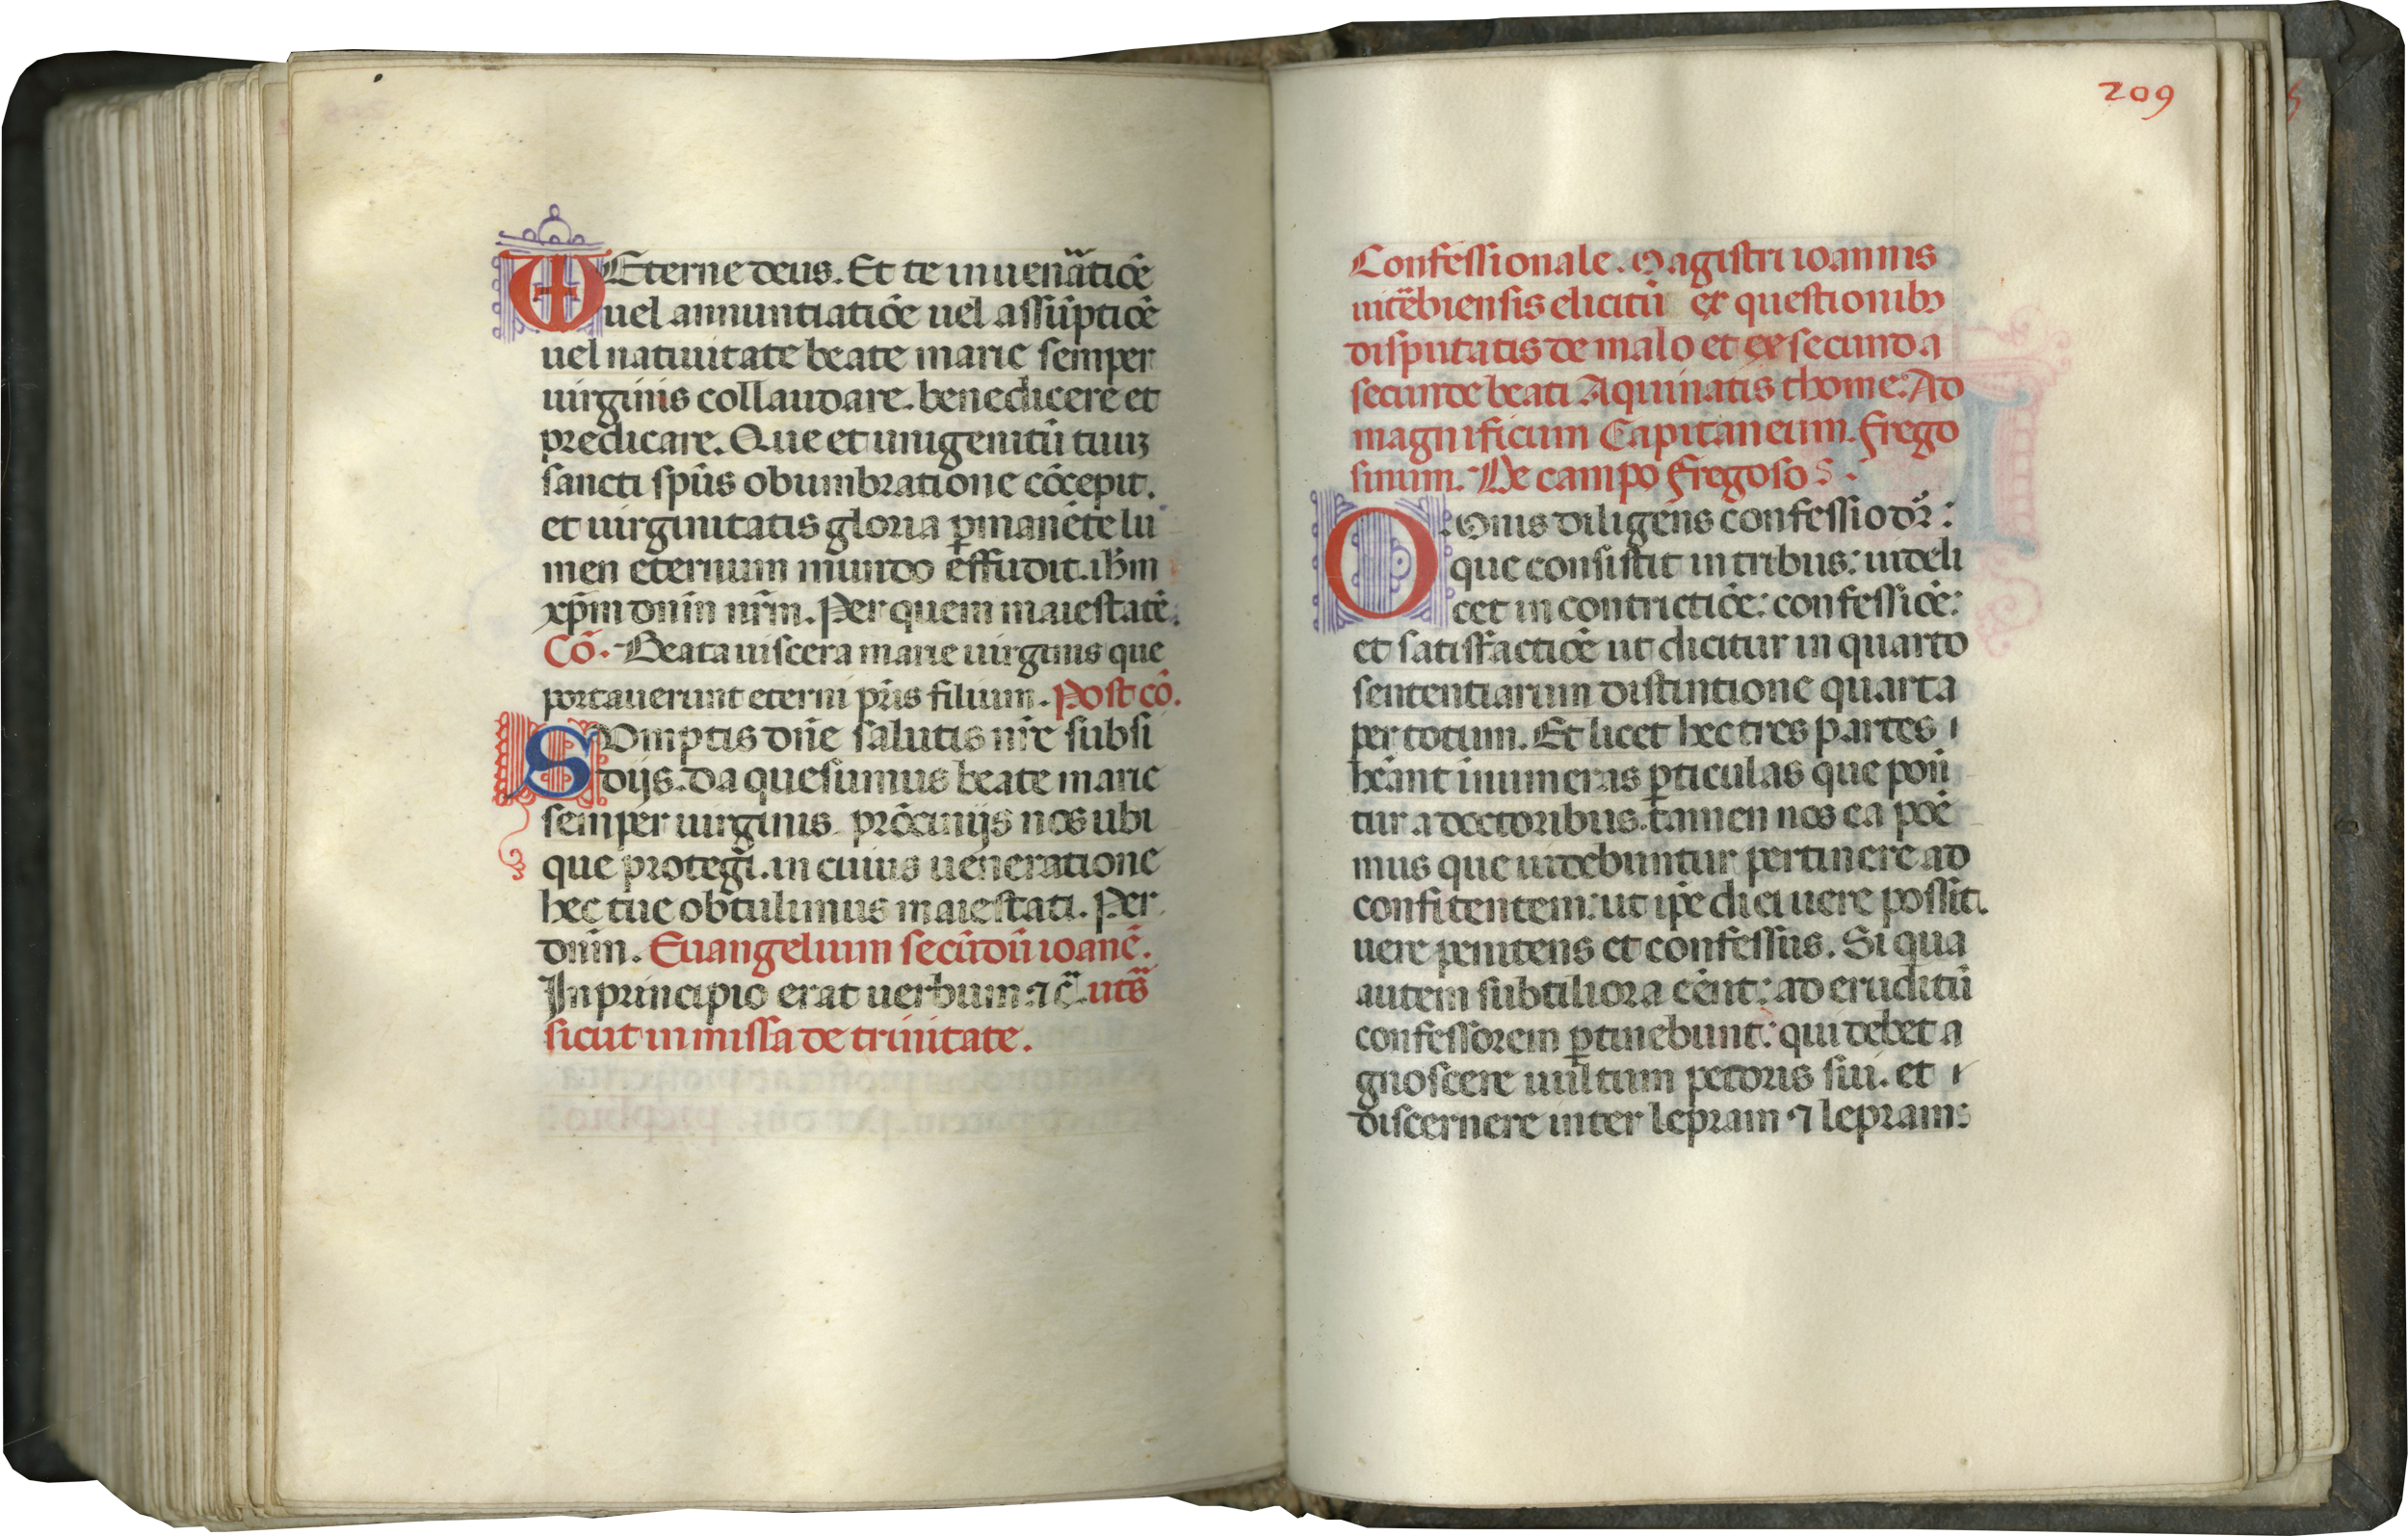 VD Eterne deus. Et te in uenãtiõe
uel annuntiatiõe uel assũptiõe
uel natiuitate beate marie semper
uirginis collaudare. benedicere et
predicare. Que et unigenitũ tuuʒ
sancti sp̃us obumbratione cõcepit.
et uirginitatis gloria ꝑmanẽte lu
men eternum mundo effudit. ihm̃
xp̃m dnm̃ nr̃m. Per quem maiestatẽ.
Cõ. Beata uiscera marie uirginis que
portauerunt eterni pr̃is filium. Post cõ.
SVmptis dñe salutis nr̃e subsi
dijs. da quesumus beate marie
semper uirginis prõcinijs nos ubi
que protegi. in cuius ueneratione
hec tue obtulimus maiestati. Per
dnm̃. Euangelium secũdũ ioanẽ.
In principio erat uerbum ⁊c̃. uts̃
sicut in missa de trinitate.
209
Confessionale. Magistri ioannis
uitẽbiensis elicitũ ex questionibꝫ
disputatis de malo et ex secunda
secunde beati Aquinatis thome. Ad
magnificum Capitaneum. Frego
sinum. De campo Fregoso S.
OMnis diligens confessio dr̃:
que consistit in tribus: uideli
cet in contrictiõe: confessiõe:
et satisfactiõe ut dicitur in quarto
sententiarum distintione quarta
per totum. Et licet hec tres partes
hẽant inumeras ꝑticulas que ponũ
tur a doctoribus. tamen nos ea poẽ
mus que uidebuntur pertinere ad
confitentem: ut ip̃e dici uere possit.
uere penitens et confessus. Si qua
autem subtiliora cẽnt: ad eruditũ
confessorem ꝑtinebunt: qui debet a
gnoscere uultum pecoris sui. et
discernere inter lepram ⁊ lepram: